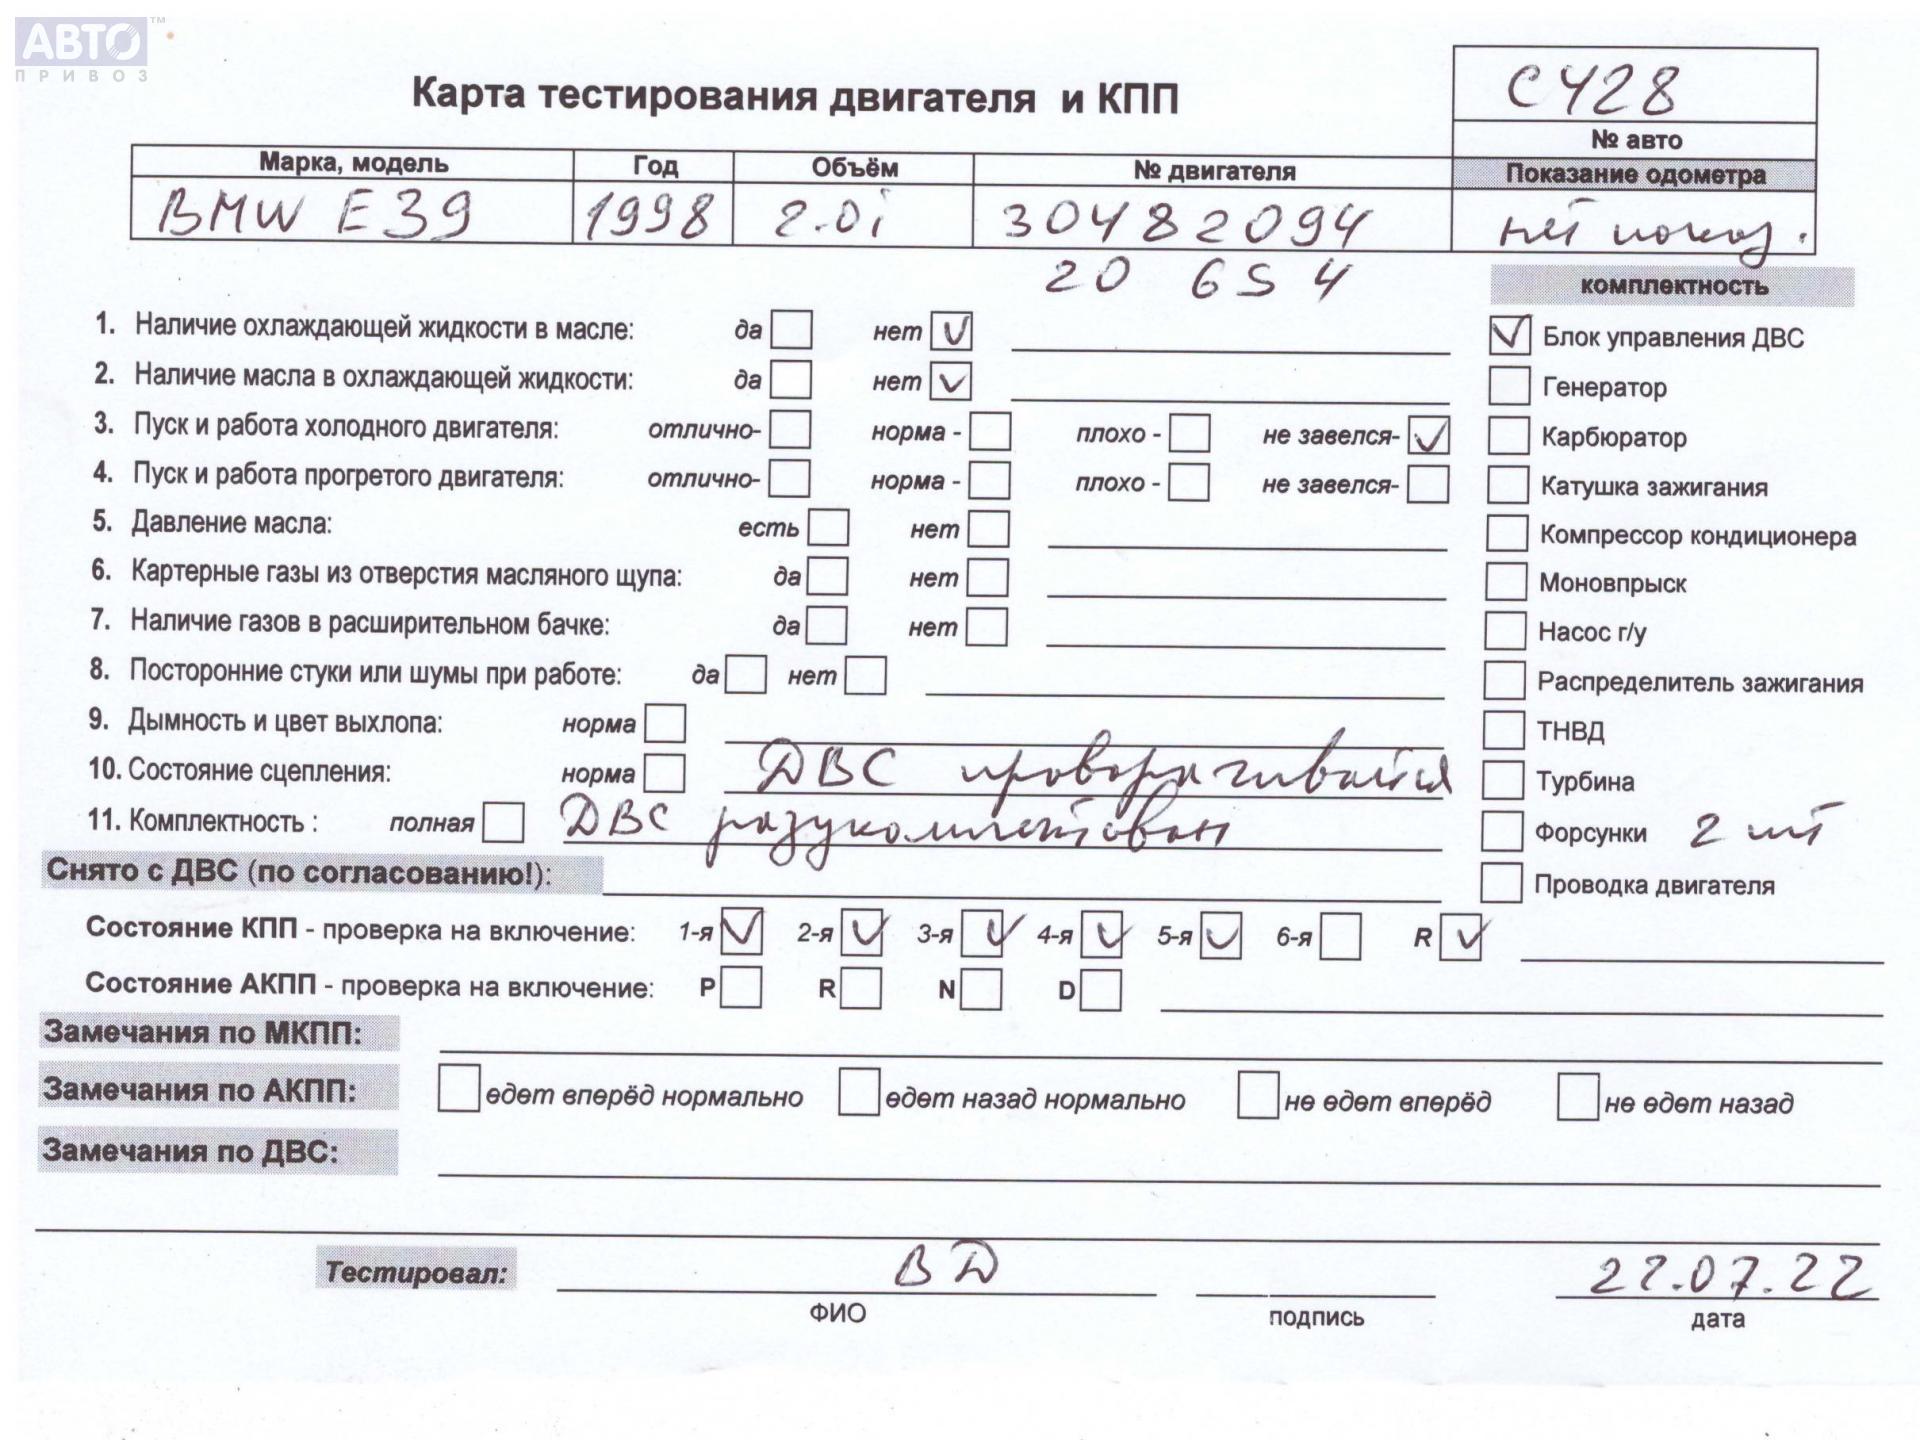 АВТО™
ПРИВОЗ
Карта тестирования двигателя и КПП
СЧ28
№ авто
Марка, модель Год Объём № двигателя Показание одометра
BMW E39 1998 2.0i 30482094 нет показ.
20 6S 4
комплектность
1. Наличие охлаждающей жидкости в масле: да нет ✓
✓ Блок управления ДВС
2. Наличие масла в охлаждающей жидкости: да нет ✓
Генератор
3. Пуск и работа холодного двигателя: отлично- норма - плохо - не завелся- ✓
Карбюратор
4. Пуск и работа прогретого двигателя: отлично- норма - плохо - не завелся-
Катушка зажигания
5. Давление масла: есть нет
Компрессор кондиционера
6. Картерные газы из отверстия масляного щупа: да нет
Моновпрыск
7. Наличие газов в расширительном бачке: да нет
Насос г/у
8. Посторонние стуки или шумы при работе: да нет
Распределитель зажигания
9. Дымность и цвет выхлопа: норма
ТНВД
10. Состояние сцепления: норма ДВС проворачивается
Турбина
11. Комплектность : полная ДВС разукомплектован
Форсунки 2 шт
Снято с ДВС (по согласованию!):
Проводка двигателя
Состояние КПП - проверка на включение: 1-я ✓ 2-я ✓ 3-я ✓ 4-я ✓ 5-я ✓ 6-я R ✓
Состояние АКПП - проверка на включение: P R N D
Замечания по МКПП:
Замечания по АКПП: едет вперёд нормально едет назад нормально не едет вперёд не едет назад
Замечания по ДВС:
Тестировал: ВД 22.07.22
ФИО подпись дата